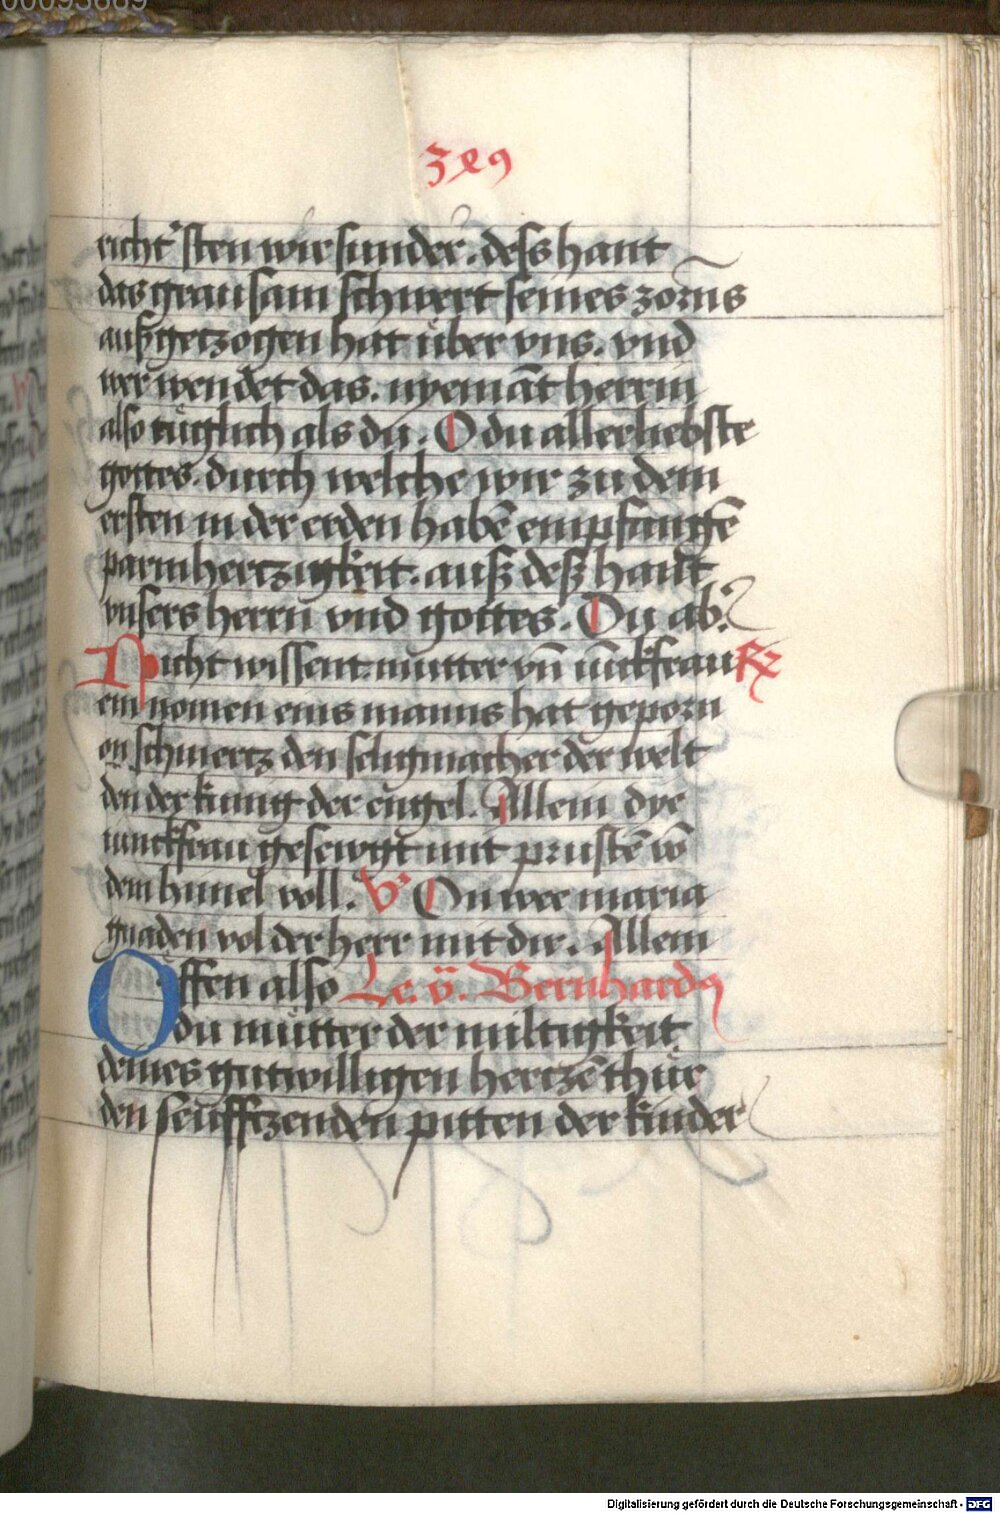 00093689
389
richt'sten wir sunder. dess hant
das grausam schwert seines zorns
außgetzogen hat über vns. vnd
wer wendet das. nyemāt herrin
also tüglich als du. O du allerliebste
gottes. durch welche wir zu dem
ersten in der erden habē empfangē
parmhertzigkeit. auß deß handt
vnsers herrn vnd gottes. Du ab'
Nicht wissent mutter vñ iūckfrau R
ein nomen eins manns hat geporn
on schmertz den seligmacher der welt
den der kunig der engel. Allein dye
iunckfrau gesewgt mit prustē
dem himel voll. V' On wee maria
gnaden vol der herr mit dir. Allein
Offen also Le. v. Bernhardꝯ
du mutter der miltigkeit
deines gutwilligen hertzē thür
den seüfftzenden pitten der kinder
Digitalisierung gefördert durch die Deutsche Forschungsgemeinschaft - DFG